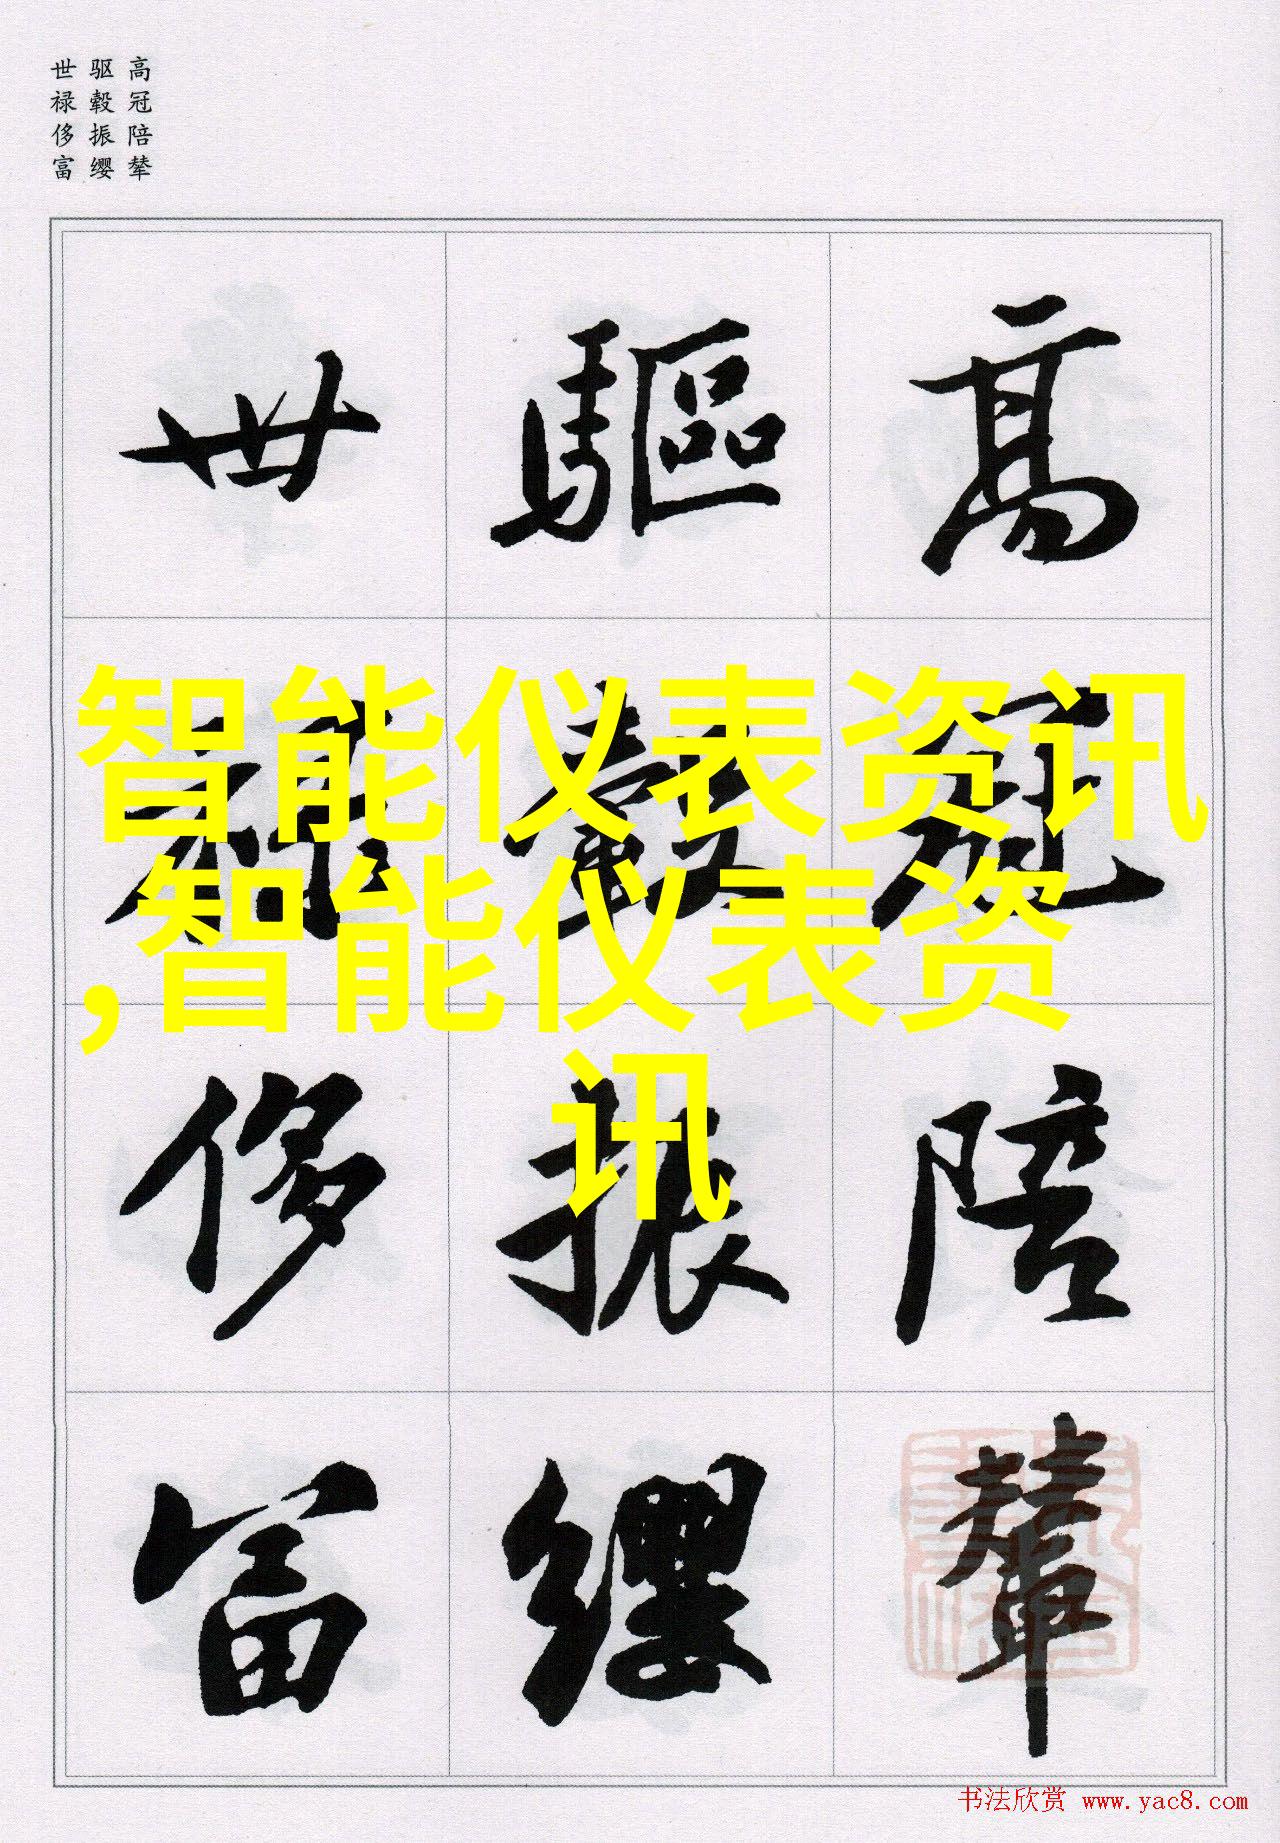 高冠陪辇
驱毂振缨
世禄侈富
高冠陪輦
驅轂振纓
世禄侈富
智能仪表资讯
,智能仪表资
讯
书法欣赏 www.yac8.com